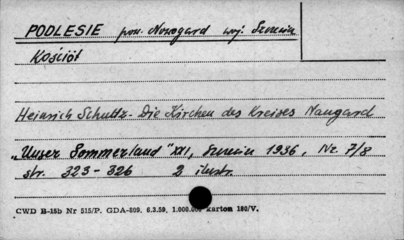 PODLESIE pow. Nowogard woj. Szczecin
Kościół
Heinrich Schultz - Die Kirchen des Kreises Naugard
„Unser Pommerland" XXI, Szczecin 1936, Nr. 7/8
str. 323-326 2 ilustr.
CWD B-15b Nr 515/P. GDA-809. 6.3.59. 1.000.000 karton 180/V.